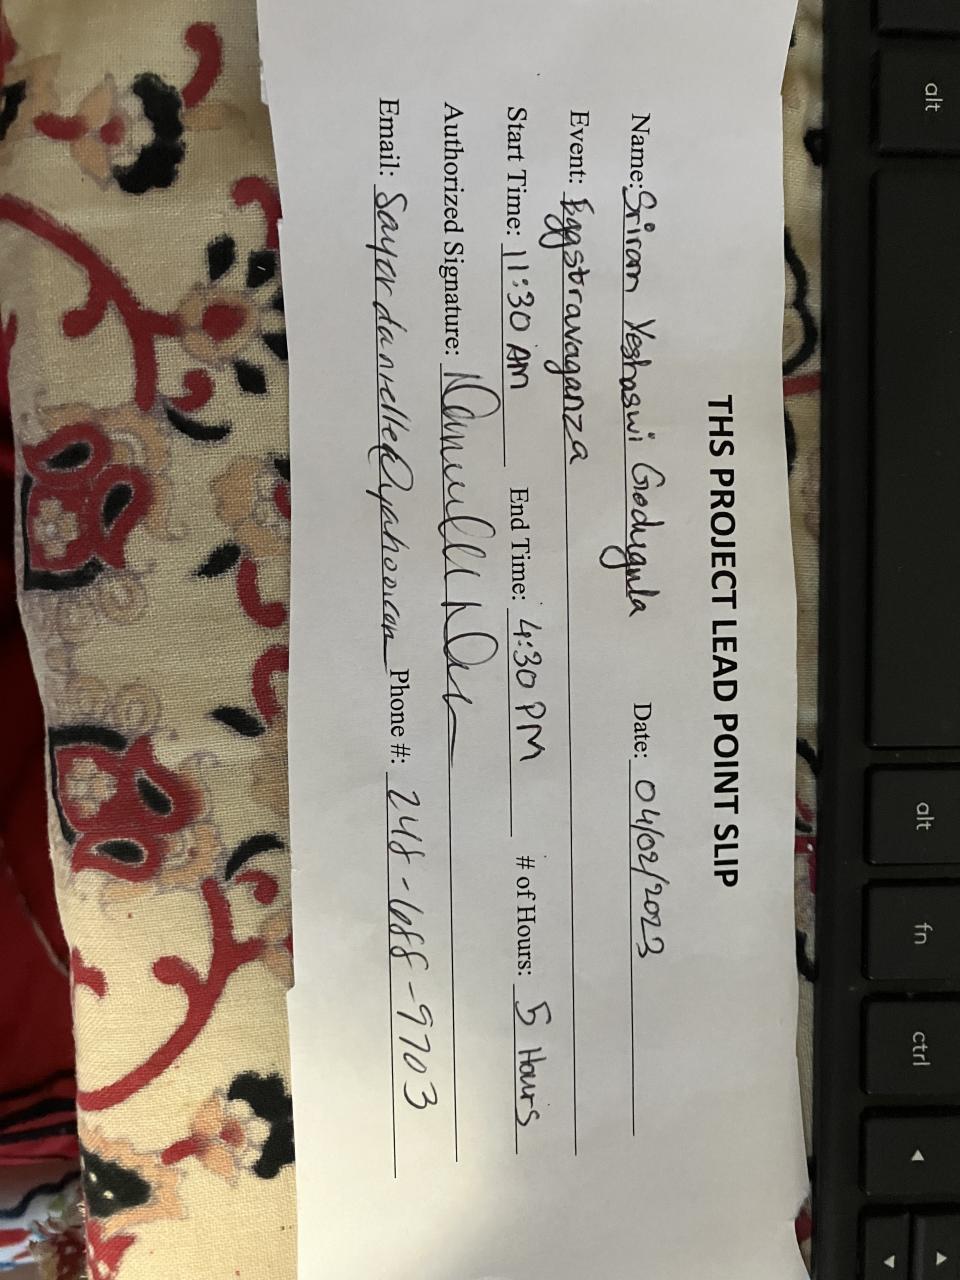 THS PROJECT LEAD POINT SLIP
Name: Sriram Yeshaswi Grodugula Date: 04/02/2023
Event: Eggstravaganza
Start Time: 11:30 AM End Time: 4:30 PM # of Hours: 5 Hours
Authorized Signature:
Email: Sayordanielle@yahoo.com Phone #: 248-688-9703
alt
alt
fn
ctrl